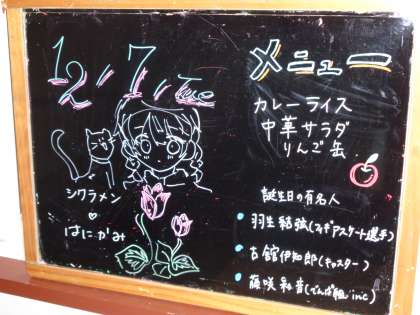 12/7, Tue
シクラメン
♡
はにかみ
メニュー
カレーライス
中華サラダ
りんご缶
誕生日の有名人
羽生結弦(フィギアスケート選手)
古舘伊知郎(キャスター)
藤咲彩音(でんぱ組.inc)